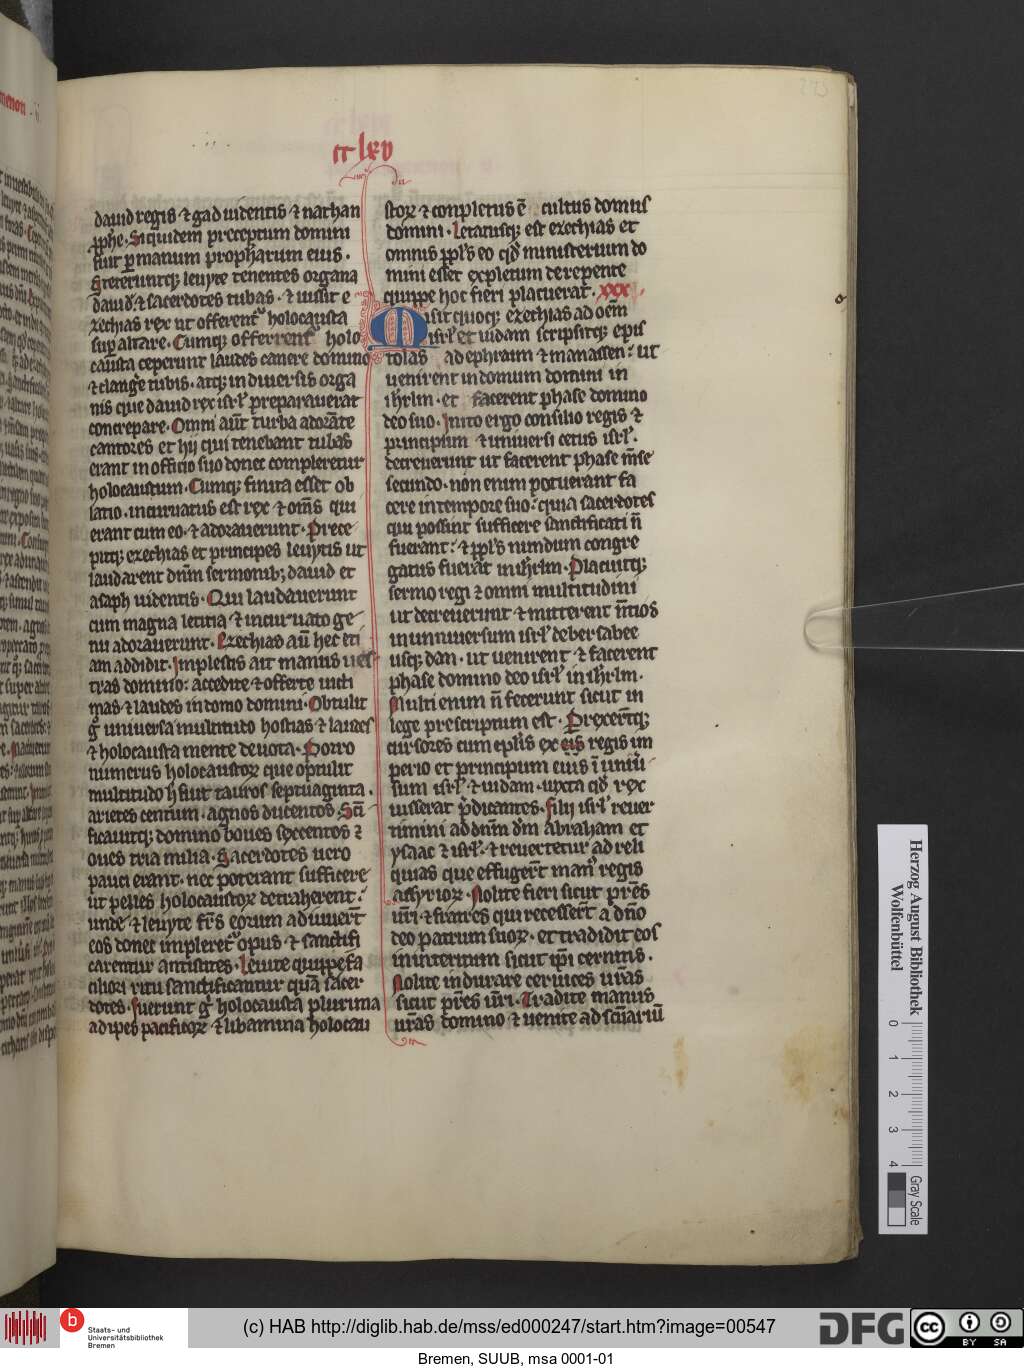 cclxv
dauid regis ⁊ gad uidentis ⁊ nathan
ꝓphe. Siquidem preceptum domini
fuit ꝑ manum propharum eius.
Steteruntqꝫ leuyte tenentes organa
dauid. ⁊ sacerdotes tubas. ⁊ iussit e
zechias rex ut offerent᷑ holocausta
suꝑ altare. Cumqꝫ offerrent᷑ holo
causta ceperunt laudes canere domino
⁊ clange tubis. atqꝫ in diuersis orga
nis que dauid rex isrl̓ preparauerat
concrepare. Omni aut̄ turba adorāte
cantores et hij qui tenebant tubas
erant in officio suo donec compleretur
holocaustum. Cumqꝫ finita esset ob
latio. incuruatus est rex ⁊ om̄s qui
erant cum eo. ⁊ adorauerunt. Prece
pitqꝫ ezechias et principes leuytis ut
laudarent dn̄m sermonibꝫ dauid et
asaph uidentis. Qui laudauerunt
cum magna letitia ⁊ incuruato ge
nu adorauerunt. Ezechias au̅ hec eti
am addidit. Implestis ait manus ues
tras domino: accedite ⁊ offerte uicti
mas ⁊ laudes in domo domini. Obtulit
gͦ uniuersa multitudo hostias ⁊ laudes
⁊ holocausta mente deuota. Porro
numerus holocaustoꝝ que optulit
multitudo h̓ fiut tauros septuaginta.
arietes centum. agnos ducentos. Sc̄i
ficauitqꝫ domino boues sexcentos ⁊
oues tria milia. Sacerdotes uero
pauci erant. nec poterant sufficere
ut pelles holocaustoꝝ detraherent.
unde ⁊ leuyte fr̄s eorum adiuuer̄t
eos donec impleret᷑ opus ⁊ sanctifi
carentur antistites. Leuite quippe fa
ciliori ritu sanctificantur quā sacer
dotes. Fuerunt gͦ holocausta plurima
adipes pacificoꝝ ⁊ libamina holocau
stoꝝ ⁊ conpletus ē cultus domus
domini. Letatusqꝫ est ezechias et
omnis ppl̓s eo qd̓ ministerium do
mini esset expletum de repente
quippe hoc fieri placuerat. xxx.
Misit quoqꝫ ezechias ad oēm
isrl̓ et iudam scripsitqꝫ epis
tolas ad ephraim ⁊ manassen: ut
uenirent in domum domini in
ihrlm. et facerent phase domino
deo suo. Inito ergo consilio regis ⁊
principum ⁊ uniuersi cetus isrl̓.
decreuerunt ut facerent phase m̄se
secundo. non enim potuerant fa
cere in tempore suo: quia sacerdotes
qui possent sufficere sanctificati n̄
fuerant: ⁊ ppl̓s nundum congre
gatus fuerat in ihrlm. Placuitqꝫ
sermo regi ⁊ omni multitudini
ut decreuerunt ⁊ mitterent n̄tios
in uniuersum isrl̓ de bersabee
usqꝫ dan. ut uenirent ⁊ facerent
phase domino deo isrl̓ in ihrlm.
Multi enim n̄ fecerunt sicut in
lege prescriptum est. Prexer̄tqꝫ
cursores cum epl̓is ex eis regis im
perio et principum eius ī uniū
sum isrl̓ ⁊ iudam. iuxta qd̓ rex
iusserat p̄dicantes. Filij isrl̓ reuer
timini ad dn̄m dm̄ abraham et
ysaac ⁊ isrl̓. ⁊ reuertetur ad reli
quias que effuger̄t man᷒ regis
assyrioꝝ. Nolite fieri sicut pr̄es
ur̄i. ⁊ fratres qui recesser̄t a dn̄o
deo patrum suoꝝ. et tradidit eos
in interitum sicut ip̄i cernitis.
Nolite indurare ceruices ur̄as
sicut pr̄es ur̄i. Tradite manus
ur̄as domino ⁊ uenite ad sc̄uariū
Herzog August Bibliothek
Wolfenbüttel
0 1 2 3 4
Gray Scale
HAB
b Staats- und
Universitätsbibliothek
Bremen
(c) HAB http://diglib.hab.de/mss/ed000247/start.htm?image=00547
DFG
cc BY SA
Bremen, SUUB, msa 0001-01